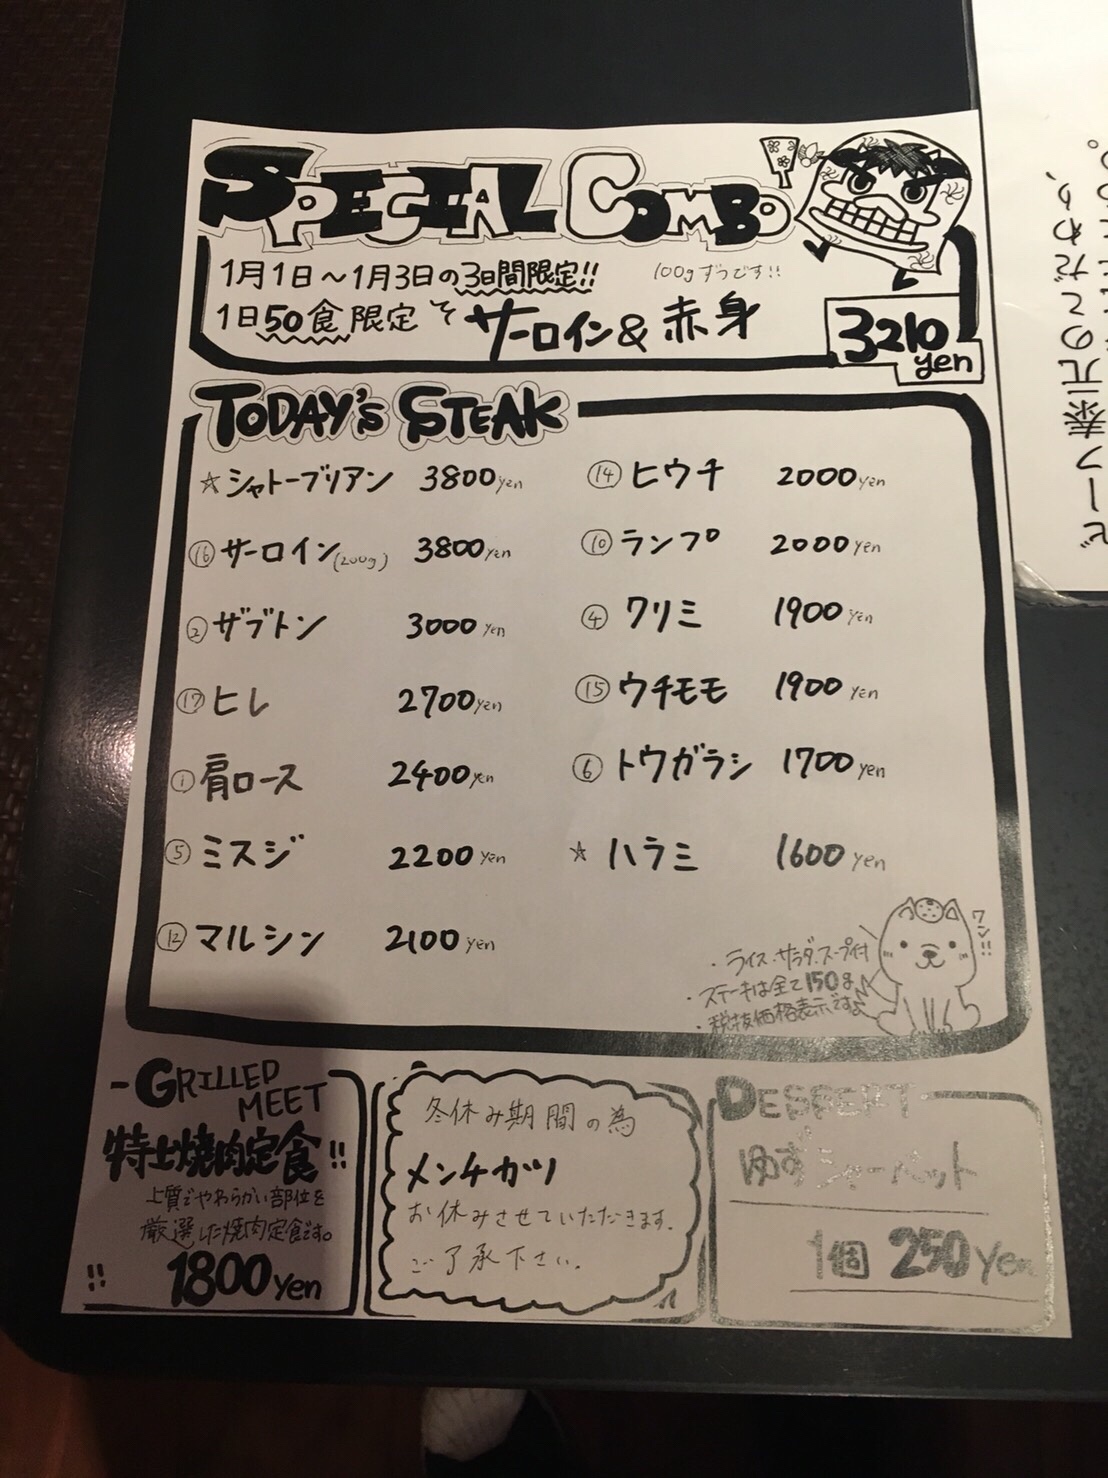 SPECIAL COMBO
1月1日〜1月3日の3日間限定!!
100gずつです!!
1日50食限定
サーロイン&赤身
3210
yen
TODAY'S STEAK
☆シャトーブリアン 3800yen
⑯サーロイン(200g) 3800yen
②ザブトン 3000yen
⑰ヒレ 2700yen
①肩ロース 2400yen
⑤ミスジ 2200yen
⑫マルシン 2100yen
⑭ヒウチ 2000yen
⑩ランプ 2000yen
④クリミ 1900yen
⑮ウチモモ 1900yen
⑥トウガラシ 1700yen
☆ハラミ 1600yen
・ライス・サラダ・スープ付
・ステーキは全て150g
・税抜価格表示です
ワン!!
-GRILLED
MEET
特上焼肉定食!!
上質でやわらかい部位を
厳選した焼肉定食です。
1800yen
!!
冬休み期間の為
メンチカツ
お休みさせていただきます.
ご了承下さい.
DESSERT
ゆずシャーベット
1個 250yen